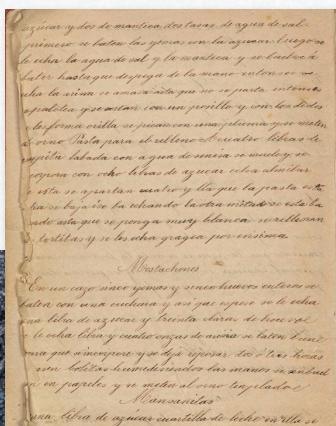 azúcar y dos de manteca dos tasas de agua de sal
primero se baten las yemas con la azucar luego se
le echa la agua de sal y la manteca y se buelve á
bater hasta que despega de la mano entonses se
echa la arina se amasa asta que no se parta entonses
se cortan con un posillo y con los dedos
se les forma orilla se pican con una pluma y se meten
al orno Pasta para el relleno A cuatro libras de
labada con agua de se muele y se
con ocho libras de azucar echa almibar
esta se apartan cuatro y lla que la pasta esta
se baja i se la echando la otra mitad se esta ba
asta que se ponga muy blanca se rellenan
tortitas y se les echa gragea por ensima
Mostachones
En un cazo sinco yemas y sinco huevos enteros se
baten con una cuchara y asi que espese se le echa
una libra de azucar y treinta claras de huevo
le echa libra y cuatro onzas de arina se baten bien
para que se incorpore y se deja reposar dos o tres horas
bolitas humedeciendos las manos
en papeles y se meten al orno templado
Mansanitas
una libra de azúcar cuartilla de leche en ella se